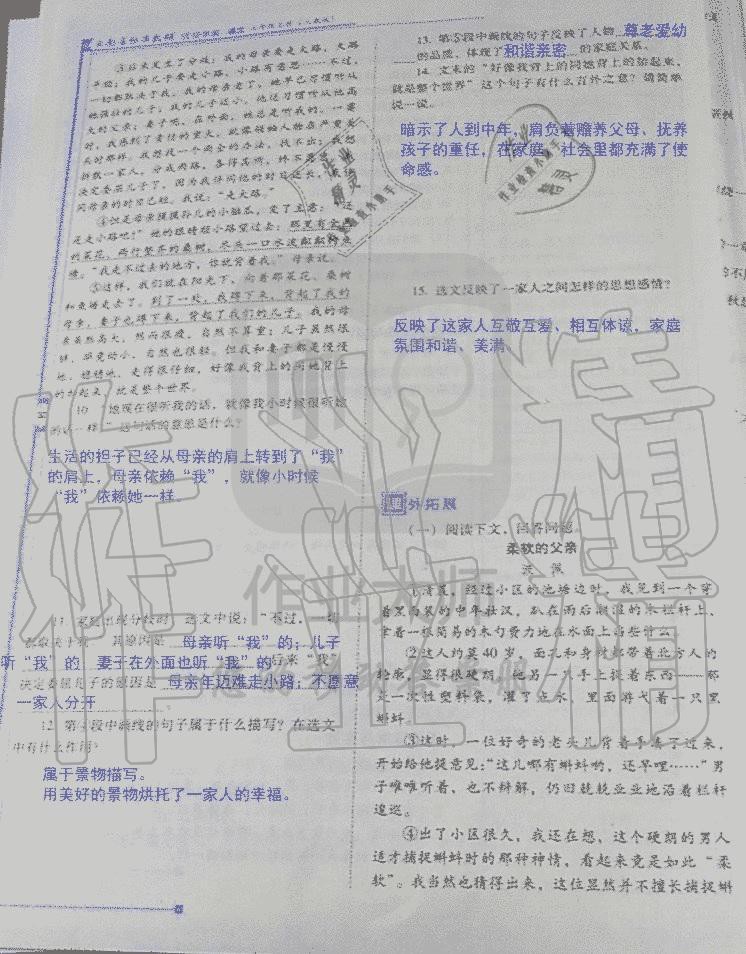 ③后来发生了分歧：我的母亲要走大路，大路
平顺；我的儿子要走小路，小路有意思……不过，
一切都取决于我。我的母亲老了，她早已习惯听从
她强壮的儿子；我的儿子还小，他还习惯听从他高
大的父亲；妻子呢，在外面，她总是听我的。一霎
时，我感到了责任的重大，就像领袖人物在严重关
头时那样。我想找一个两全的办法，找不出；我想
拆散一家人，分成两路，各得其所，终不愿意。我
决定委屈儿子了，因为我伴同他的时日还长，我伴
同母亲的时日已短。我说：“走大路。”
④但是母亲摸摸孙儿的小脑瓜，变了主意：“还
是走小路吧！”她的眼睛顺小路望过去：那里有金色
的菜花，两行整齐的桑树，尽头一口水波粼粼的鱼
塘。“我走不过去的地方，你就背着我。”母亲说。
⑤这样，我们就在阳光下，向着那菜花、桑树
和鱼塘走去了。到了一处，我蹲下来，背起了我的
母亲，妻子也蹲下来，背起了我们的儿子。我的母
亲虽然高大，然而很瘦，自然不算重；儿子虽然很
胖，毕竟幼小，自然也很轻。但我和妻子都是慢慢
地，稳稳地，走得很仔细，好像我背上的同她背上
的加起来，就是整个世界。
10. “她现在很听我的话，就像我小时候很听她
的话一样。”这句话的意思是什么？
生活的担子已经从母亲的肩上转到了“我”
的肩上，母亲依赖“我”，就像小时候
“我”依赖她一样。
母亲听“我”的；儿子
听“我”的 妻子在外面也听“我”的
决定委屈儿子的原因是 母亲年迈难走小路；不愿意
一家人分开
12. 第④段中画线的句子属于什么描写？在选文
中有什么作用？
属于景物描写。
用美好的景物烘托了一家人的幸福。
13. 第⑤段中画线的句子反映了人物 尊老爱幼
的品质，体现了 和谐亲密 的家庭关系。
14. 文末的“好像我背上的同她背上的加起来，
就是整个世界”这个句子有什么言外之意？请简单
说一说。
暗示了人到中年，肩负着赡养父母、抚养
孩子的重任，在家庭、社会里都充满了使
命感。
15. 选文反映了一家人之间怎样的思想感情？
反映了这家人互敬互爱、相互体谅，家庭
氛围和谐、美满
课外拓展
（一）阅读下文，回答问题。
柔软的父亲
①清晨，经过小区的池塘边时，我见到一个穿
着黑雨装的中年壮汉，趴在雨后潮湿的木栏杆上，
拿着一根简易的木勺费力地在水面上舀些什么。
②这人约莫 40 岁，面孔和身材都带着北方人的
轮廓，显得很硬朗。他另一只手上提着东西——那
是一次性塑料袋，灌了点水，里面游弋着一只黑
蝌蚪。
③这时，一位好奇的老头儿背着手凑了过来，
开始给他提意见：“这儿哪有蝌蚪哟，还早哩……”男
子唯唯听着，也不辩解，仍旧兢兢业业地沿着栏杆
逡巡。
④出了小区很久，我还在想，这个硬朗的男人
适才捕捉蝌蚪时的那种神情，看起来竟是如此“柔
软”。我当然也猜得出来，这位显然并不擅长捕捉蝌
作业大师
作业精灵